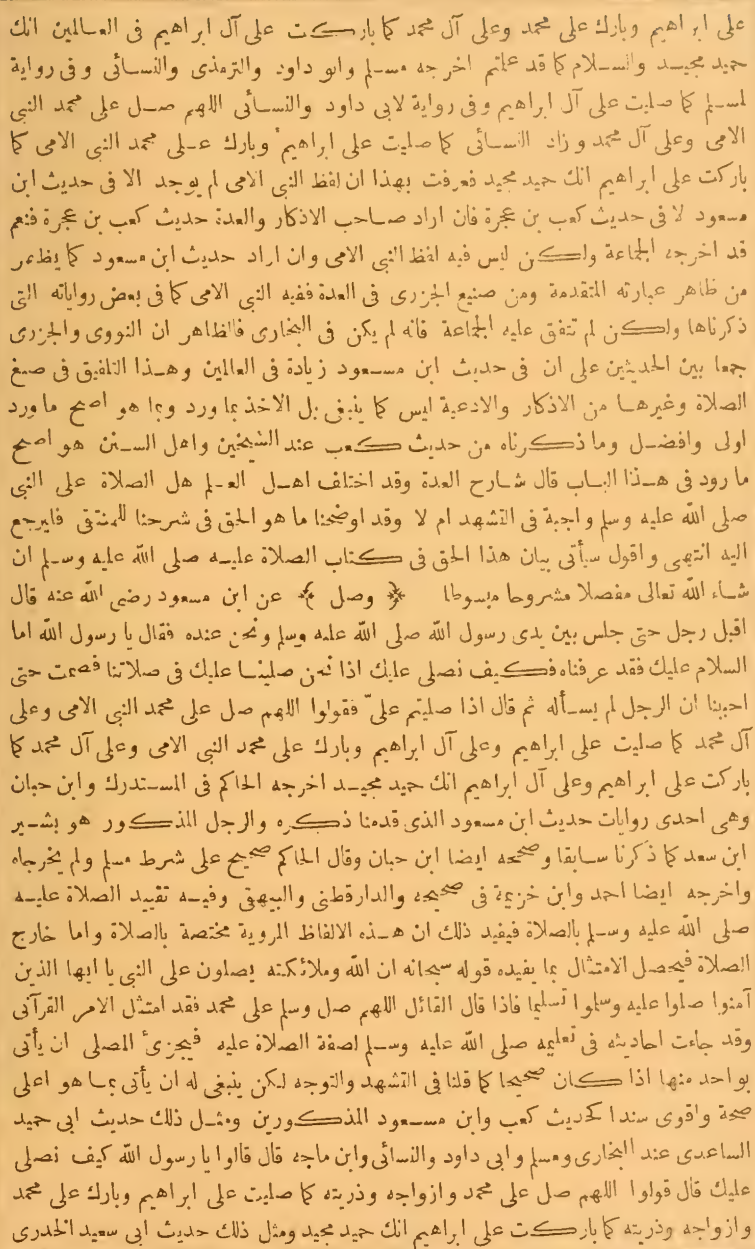 على ابراهيم وبارك على محمد وعلى آل محمد كما باركت على آل ابراهيم فى العالمين انك
حميد مجيد والسلام كما قد علتم اخرجه مسلم وابو داود والترمذى والنسائى وفى رواية
لمسلم كما صليت على آل ابراهيم وفى رواية لابى داود والنسائى اللهم صل على محمد النبى
الامى وعلى آل محمد وزاد النسائى كما صليت على ابراهيم وبارك على محمد النبى الامى كما
باركت على ابراهيم انك حميد مجيد فعرفت بهذا ان لفظ النبى الامى لم يوجد الا فى حديث ابن
مسعود لا فى حديث كعب بن عجرة فان اراد صاحب الاذكار والعدة حديث كعب بن عجرة فنعم
قد اخرجه الجماعة ولكن ليس فيه لفظ النبى الامى وان اراد حديث ابن مسعود كما يظهر
من ظاهر عبارته المتقدمة ومن صنيع الجزرى فى العدة ففيه النبى الامى كما فى بعض رواياته التى
ذكرناها ولكن لم تتفق عليه الجماعة فانه لم يكن فى البخارى فالظاهر ان النووى والجزرى
جمعا بين الحديثين على ان فى حديث ابن مسعود زيادة فى العالمين وهذا التلفيق فى صيغ
الصلاة وغيرها من الاذكار والادعية ليس كما ينبغى بل الاخذ بما ورد وبما هو اصح ما ورد
اولى وافضل وما ذكرناه من حديث كعب عند الشيخين واهل السنن هو اصح
ما رود فى هذا الباب قال شارح العدة وقد اختلف اهل العلم هل الصلاة على النبى
صلى الله عليه وسلم واجبة فى التشهد ام لا وقد اوضحنا ما هو الحق فى شرحنا للمنتقى فليرجع
اليه انتهى واقول سيأتى بيان هذا الحق فى كتاب الصلاة عليه صلى الله عليه وسلم ان
شاء الله تعالى مفصلا مشروحا مبسوطا ﴿ وصل ﴾ عن ابن مسعود رضى الله عنه قال
اقبل رجل حتى جلس بين يدى رسول الله صلى الله عليه وسلم ونحن عنده فقال يا رسول الله اما
السلام عليك فقد عرفناه فكيف نصلى عليك اذا نحن صلينا عليك فى صلاتنا فصمت حتى
احببنا ان الرجل لم يسأله ثم قال اذا صليتم علىّ فقولوا اللهم صل على محمد النبى الامى وعلى
آل محمد كما صليت على ابراهيم وعلى آل ابراهيم وبارك على محمد النبى الامى وعلى آل محمد كما
باركت على ابراهيم وعلى آل ابراهيم انك حميد مجيد اخرجه الحاكم فى المستدرك وابن حبان
وهى احدى روايات حديث ابن مسعود الذى قدمنا ذكره والرجل المذكور هو بشير
ابن سعد كما ذكرنا سابقا وصححه ايضا ابن حبان وقال الحاكم صحيح على شرط مسلم ولم يخرجاه
واخرجه ايضا احمد وابن خزيمة فى صحيحه والدارقطنى والبيهقى وفيه تقييد الصلاة عليه
صلى الله عليه وسلم بالصلاة فيفيد ذلك ان هذه الالفاظ المروية مختصة بالصلاة واما خارج
الصلاة فيحصل الامتثال بما يفيده قوله سبحانه ان الله وملائكته يصلون على النبى يا ايها الذين
آمنوا صلوا عليه وسلموا تسليما فاذا قال القائل اللهم صل وسلم على محمد فقد امتثل الامر القرآنى
وقد جاءت احاديثه فى تعليمه صلى الله عليه وسلم لصفة الصلاة عليه فيجزىٔ المصلى ان يأتى
بواحد منها اذا كان صحيحا كما قلنا فى التشهد والتوجه لكن ينبغى له ان يأتى بما هو اعلى
صحة واقوى سندا كحديث كعب وابن مسعود المذكورين ومثل ذلك حديث ابى حميد
الساعدى عند البخارى ومسلم وابى داود والنسائى وابن ماجه قال قالوا يا رسول الله كيف نصلى
عليك قال قولوا اللهم صل على محمد وازواجه وذريته كما صليت على ابراهيم وبارك على محمد
وازواجه وذريته كما باركت على ابراهيم انك حميد مجيد ومثل ذلك حديث ابى سعيد الخدرى